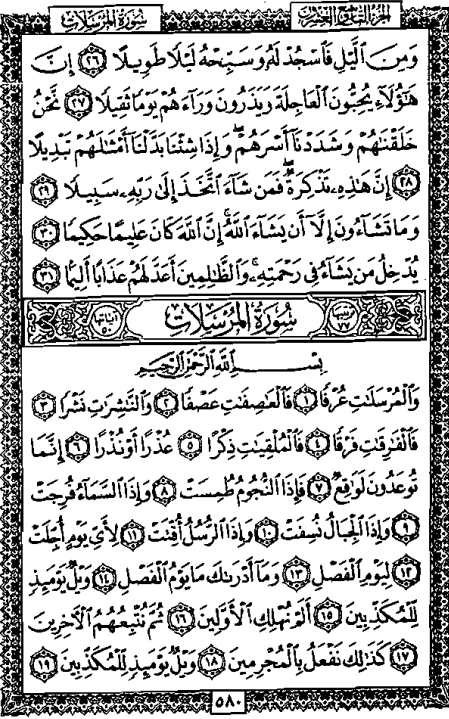 سُورَةُ المُرْسَلَات
الجزء التاسع والعشرون
وَمِنَ ٱلَّيْلِ فَٱسْجُدْ لَهُۥ وَسَبِّحْهُ لَيْلًا طَوِيلًا ٢٦ إِنَّ
هَٰٓؤُلَآءِ يُحِبُّونَ ٱلْعَاجِلَةَ وَيَذَرُونَ وَرَآءَهُمْ يَوْمًا ثَقِيلًا ٢٧ نَّحْنُ
خَلَقْنَٰهُمْ وَشَدَدْنَآ أَسْرَهُمْ ۖ وَإِذَا شِئْنَا بَدَّلْنَآ أَمْثَٰلَهُمْ تَبْدِيلًا
٢٨ إِنَّ هَٰذِهِۦ تَذْكِرَةٌ ۖ فَمَن شَآءَ ٱتَّخَذَ إِلَىٰ رَبِّهِۦ سَبِيلًا ٢٩
وَمَا تَشَآءُونَ إِلَّآ أَن يَشَآءَ ٱللَّهُ ۚ إِنَّ ٱللَّهَ كَانَ عَلِيمًا حَكِيمًا ٣٠
يُدْخِلُ مَن يَشَآءُ فِى رَحْمَتِهِۦ ۚ وَٱلظَّٰلِمِينَ أَعَدَّ لَهُمْ عَذَابًا أَلِيمًۢا ٣١
ترتيبها ٧٧ سُورَةُ المُرْسَلَاتِ آياتها ٥٠
بِسْمِ ٱللَّهِ ٱلرَّحْمَٰنِ ٱلرَّحِيمِ
وَٱلْمُرْسَلَٰتِ عُرْفًا ١ فَٱلْعَٰصِفَٰتِ عَصْفًا ٢ وَٱلنَّٰشِرَٰتِ نَشْرًا ٣
فَٱلْفَٰرِقَٰتِ فَرْقًا ٤ فَٱلْمُلْقِيَٰتِ ذِكْرًا ٥ عُذْرًا أَوْ نُذْرًا ٦ إِنَّمَا
تُوعَدُونَ لَوَٰقِعٌ ٧ فَإِذَا ٱلنُّجُومُ طُمِسَتْ ٨ وَإِذَا ٱلسَّمَآءُ فُرِجَتْ
٩ وَإِذَا ٱلْجِبَالُ نُسِفَتْ ١٠ وَإِذَا ٱلرُّسُلُ أُقِّتَتْ ١١ لِأَىِّ يَوْمٍ أُجِّلَتْ
١٢ لِيَوْمِ ٱلْفَصْلِ ١٣ وَمَآ أَدْرَىٰكَ مَا يَوْمُ ٱلْفَصْلِ ١٤ وَيْلٌ يَوْمَئِذٍ
لِّلْمُكَذِّبِينَ ١٥ أَلَمْ نُهْلِكِ ٱلْأَوَّلِينَ ١٦ ثُمَّ نُتْبِعُهُمُ ٱلْءَاخِرِينَ
١٧ كَذَٰلِكَ نَفْعَلُ بِٱلْمُجْرِمِينَ ١٨ وَيْلٌ يَوْمَئِذٍ لِّلْمُكَذِّبِينَ ١٩
٥٨٠